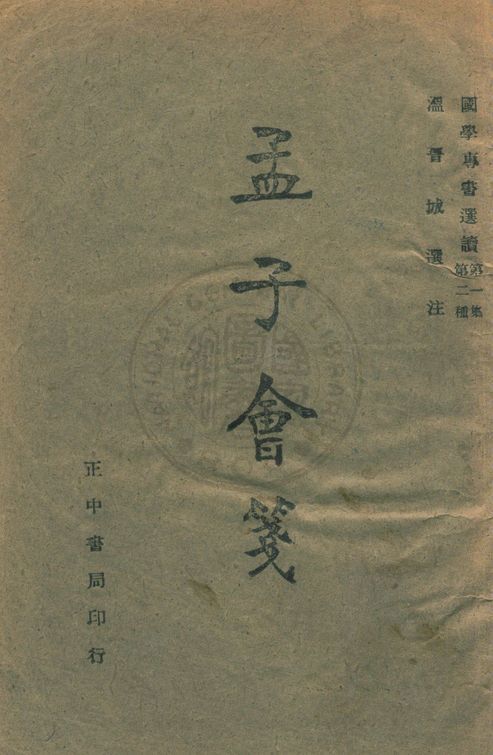 國學專書選讀 第一集
第二種
溫晉城選注
孟子會箋
正中書局印行